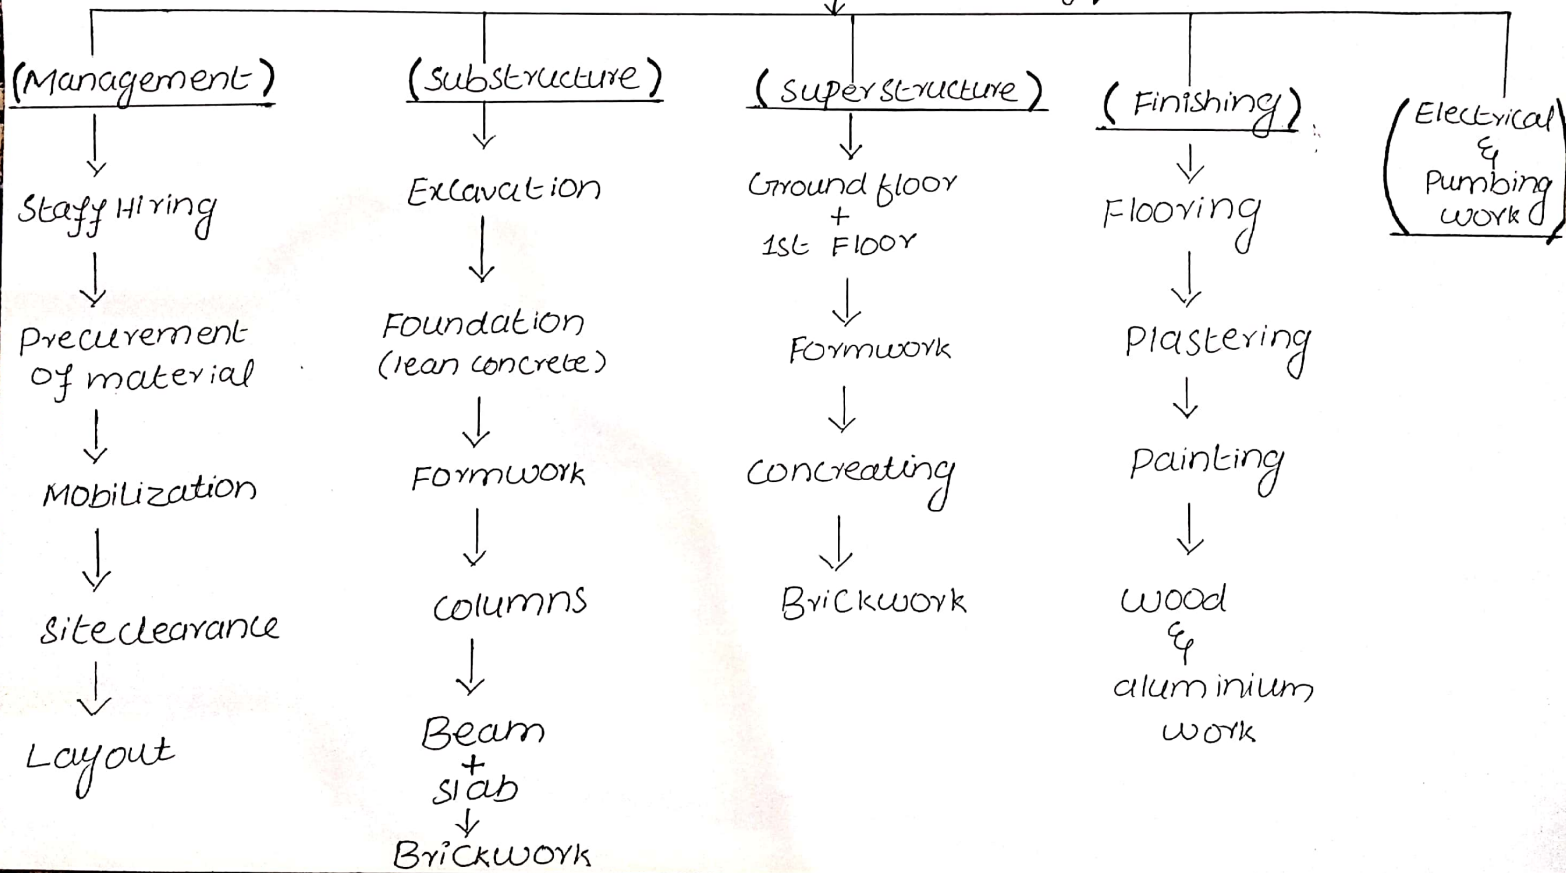 (Management)
Staff Hiring
Precurement
of material
Mobilization
Site clearance
Layout
(Substructure)
Excavation
Foundation
(lean concrete)
Formwork
columns
Beam
+
slab
Brickwork
(superstructure)
Ground floor
+
1st Floor
Formwork
concreating
Brickwork
(Finishing)
Flooring
Plastering
Painting
wood
&
aluminium
work
(Electrical
&
Pumbing
work)